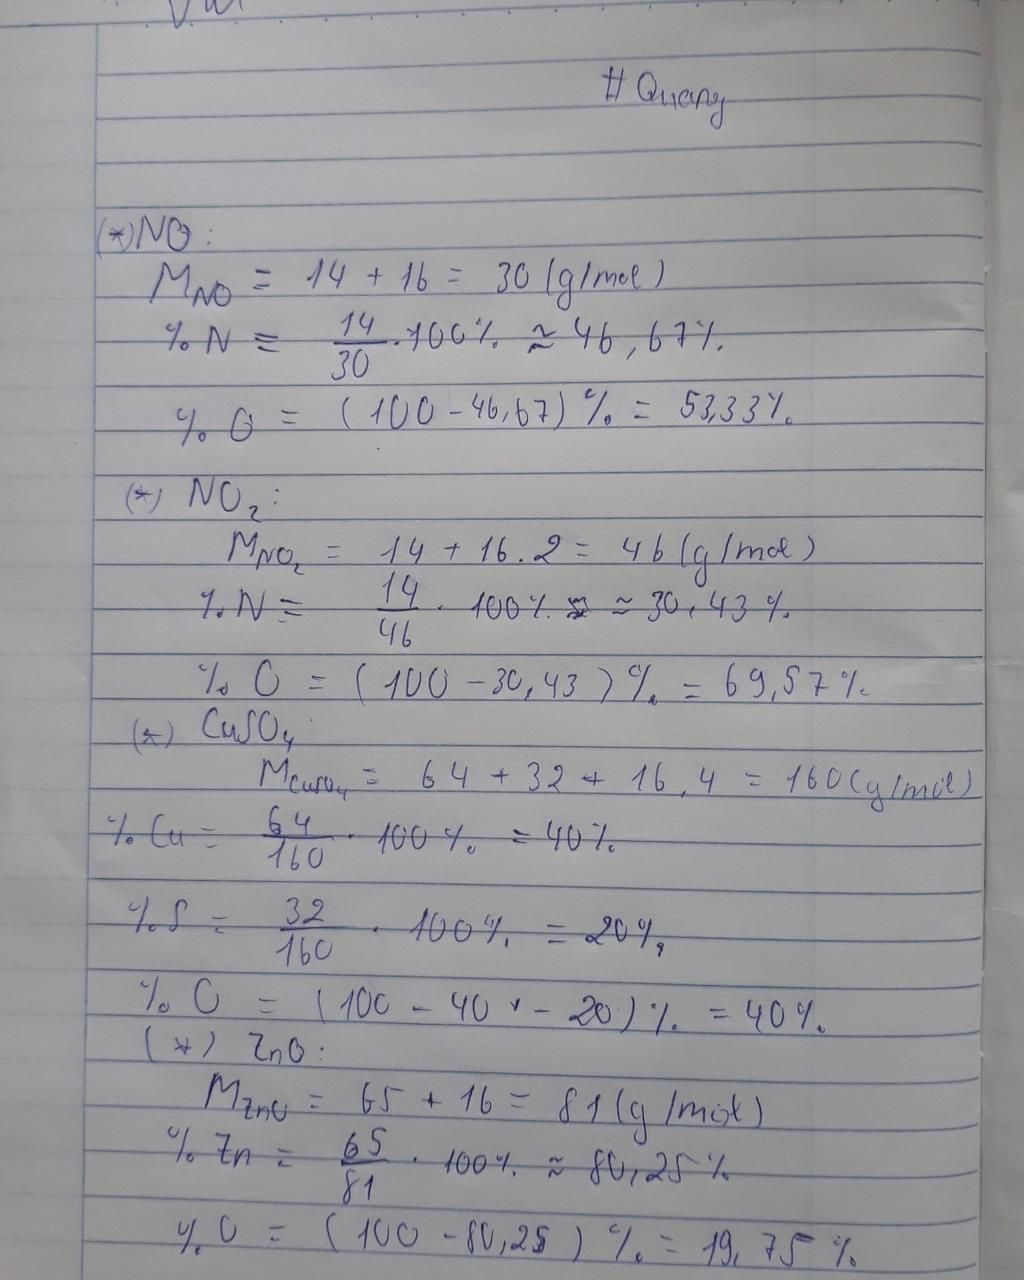 # Quang
(*) NO :
M_NO = 14 + 16 = 30 (g/mol)
% N = 14/30 . 100% ≈ 46,67%.
% O = (100 - 46,67) % = 53,33%.
(*) NO₂ :
M_NO₂ = 14 + 16.2 = 46 (g/mol)
% N = 14/46 . 100% ≈ 30,43%.
% O = (100 - 30,43) % = 69,57%.
(*) CuSO₄ :
M_CuSO₄ = 64 + 32 + 16.4 = 160 (g/mol)
% Cu = 64/160 . 100% = 40%.
% S = 32/160 . 100% = 20%,
% O = (100 - 40 - 20) % = 40%.
(*) ZnO :
M_ZnO = 65 + 16 = 81 (g/mol)
% Zn = 65/81 . 100% ≈ 80,25%
% O = (100 - 80,25) % = 19,75%